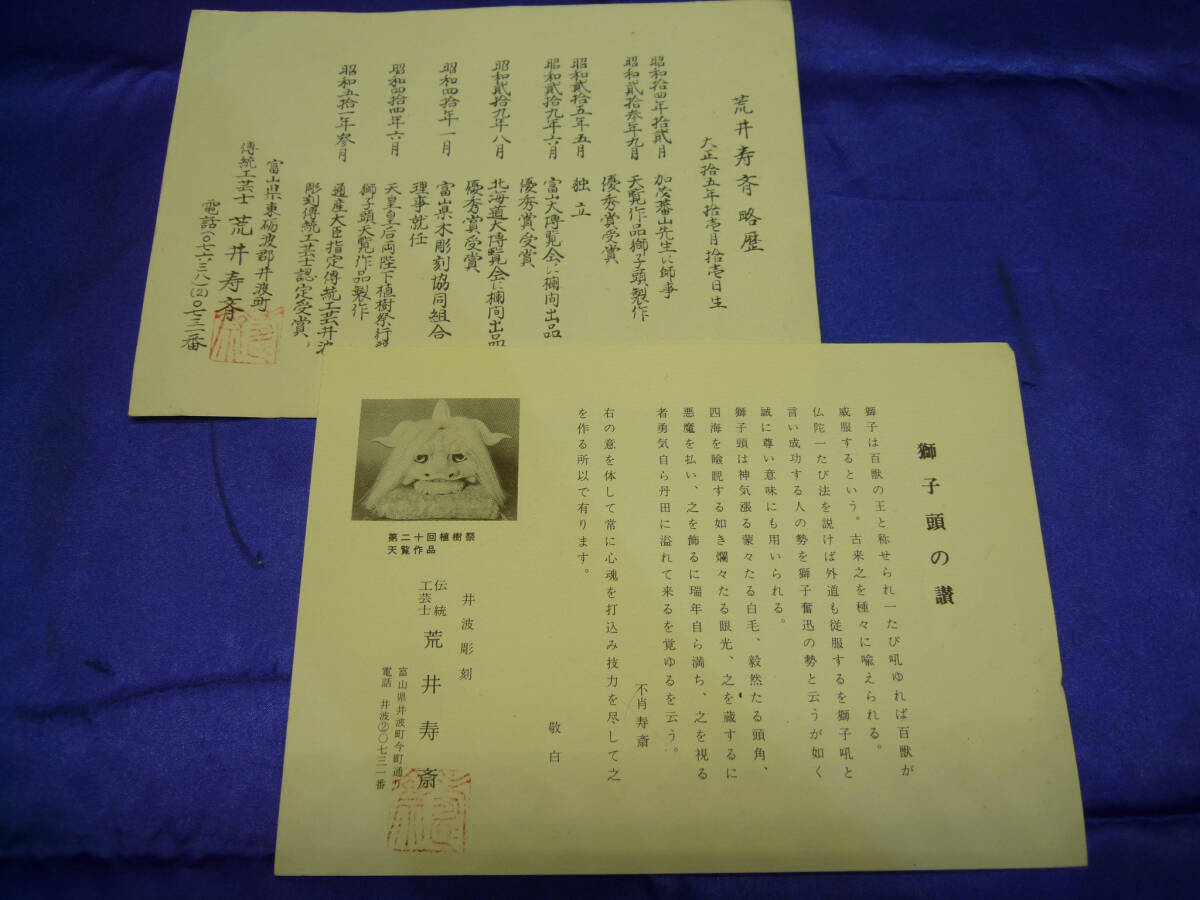 荒井寿斉略歴
大正拾五年拾壱月拾壱日生
昭和拾四年拾弐月 加茂蕃山先生に師事
昭和貳拾参年九月 天覧作品獅子頭製作
優秀賞受賞
昭和貳拾五年五月 独立
昭和貳拾九年六月 富山大博覧会に欄間出品
優秀賞受賞
昭和貳拾九年八月 北海道大博覧会に欄間出品
優秀賞受賞
昭和四拾年一月 富山県木彫刻協同組合
理事就任
昭和四拾四年六月 天皇皇后両陛下植樹祭行
獅子頭天覧作品製作
昭和五拾一年参月 通産大臣指定傳統工芸井波
彫刻傳統工芸士認定受賞
富山県東砺波郡井波町
傳統工芸士 荒井寿斉
電話(〇七六三八)(2)〇七三一番
獅子頭の讃
獅子は百獣の王と称せられ一たび吼ゆれば百獣が
威服するという。古来之を種々に喩えられる。
仏陀一たび法を説けば外道も従服するを獅子吼と
言い成功する人の勢を獅子奮迅の勢と云うが如く
誠に尊い意味にも用いられる。
獅子頭は神気漲る蒙々たる白毛、毅然たる頭角、
四海を睥睨する如き爛々たる眼光、之を蔵するに
悪魔を払い、之を飾るに瑞年自ら満ち、之を視る
者勇気自ら丹田に溢れて来るを覚ゆるを云う。
不肖寿斎
右の意を体して常に心魂を打込み技力を尽して之
を作る所以で有ります。
敬白
第二十回植樹祭
天覧作品
井波彫刻
伝統工芸士 荒井寿斎
富山県井波町今町通り
電話 井波②〇七三一番